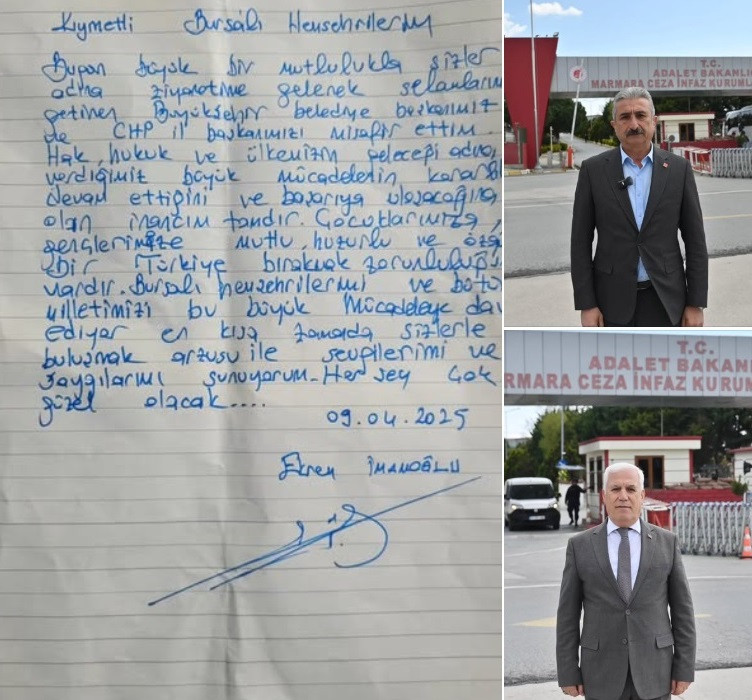 Kıymetli Bursalı Hemşehrilerim
Bugün büyük bir mutlulukla sizler
adına ziyaretime gelerek selamlarını
getiren Büyükşehir belediye başkanımız
ve CHP il başkanımızı misafir ettim.
Hak, hukuk ve ülkemizin geleceği adına
verdiğimiz büyük mücadelenin kararlı
devam ettiğini ve başarıya ulaşacağına
olan inancım tamdır. Çocuklarımıza,
gençlerimize mutlu, huzurlu ve özg
bir Türkiye bırakmak zorunluluğu
vardır. Bursalı hemşehrilerimi ve bütü
milletimizi bu büyük Mücadeleye dav
ediyor en kısa zamanda sizlerle
buluşmak arzusu ile sevgilerimi ve
saygılarımı sunuyorum. Her şey çok
güzel olacak....
09.04.2025
Ekrem İMAMOĞLU
T.C.
ADALET BAKANLI
MARMARA CEZA İNFAZ KURUML
T.C.
ADALET BAKANL
RMARA CEZA İNFAZ KURUM